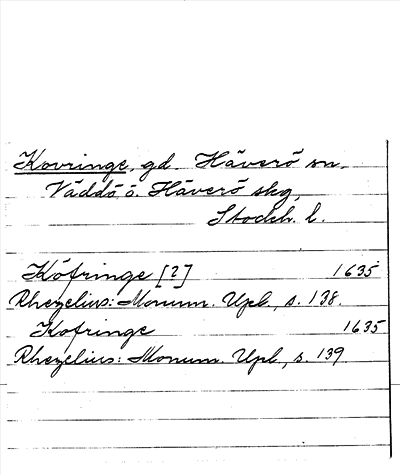 Kovringe, gd. Häverö sn,
Väddö o. Häverö skg,
Stockh. l.
Köfringe [?] 1635
Rhezelius: Monum. Upl., s. 138.
Kofringe 1635
Rhezelius: Monum. Upl., s. 139